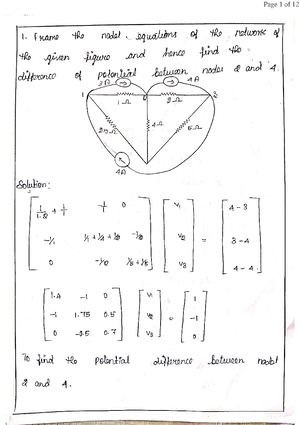 Page 1 of 12
1. Frame the nodal equations of the network of
the given figure and hence find the
difference of potential between nodes 2 and 4.
3A 4A
1 2 3
1Ω 2Ω
4Ω 5Ω
4A
Solution:
1/1 -1/1 0 V1 4-3
-1/1 V2 = 3-4
0 V3 4-4
1.4 -1 0 V1 1
-1 1.75 0.5 V2 = -1
0 -0.5 0.7 V3 0
To find the potential difference between nodal
2 and 4.